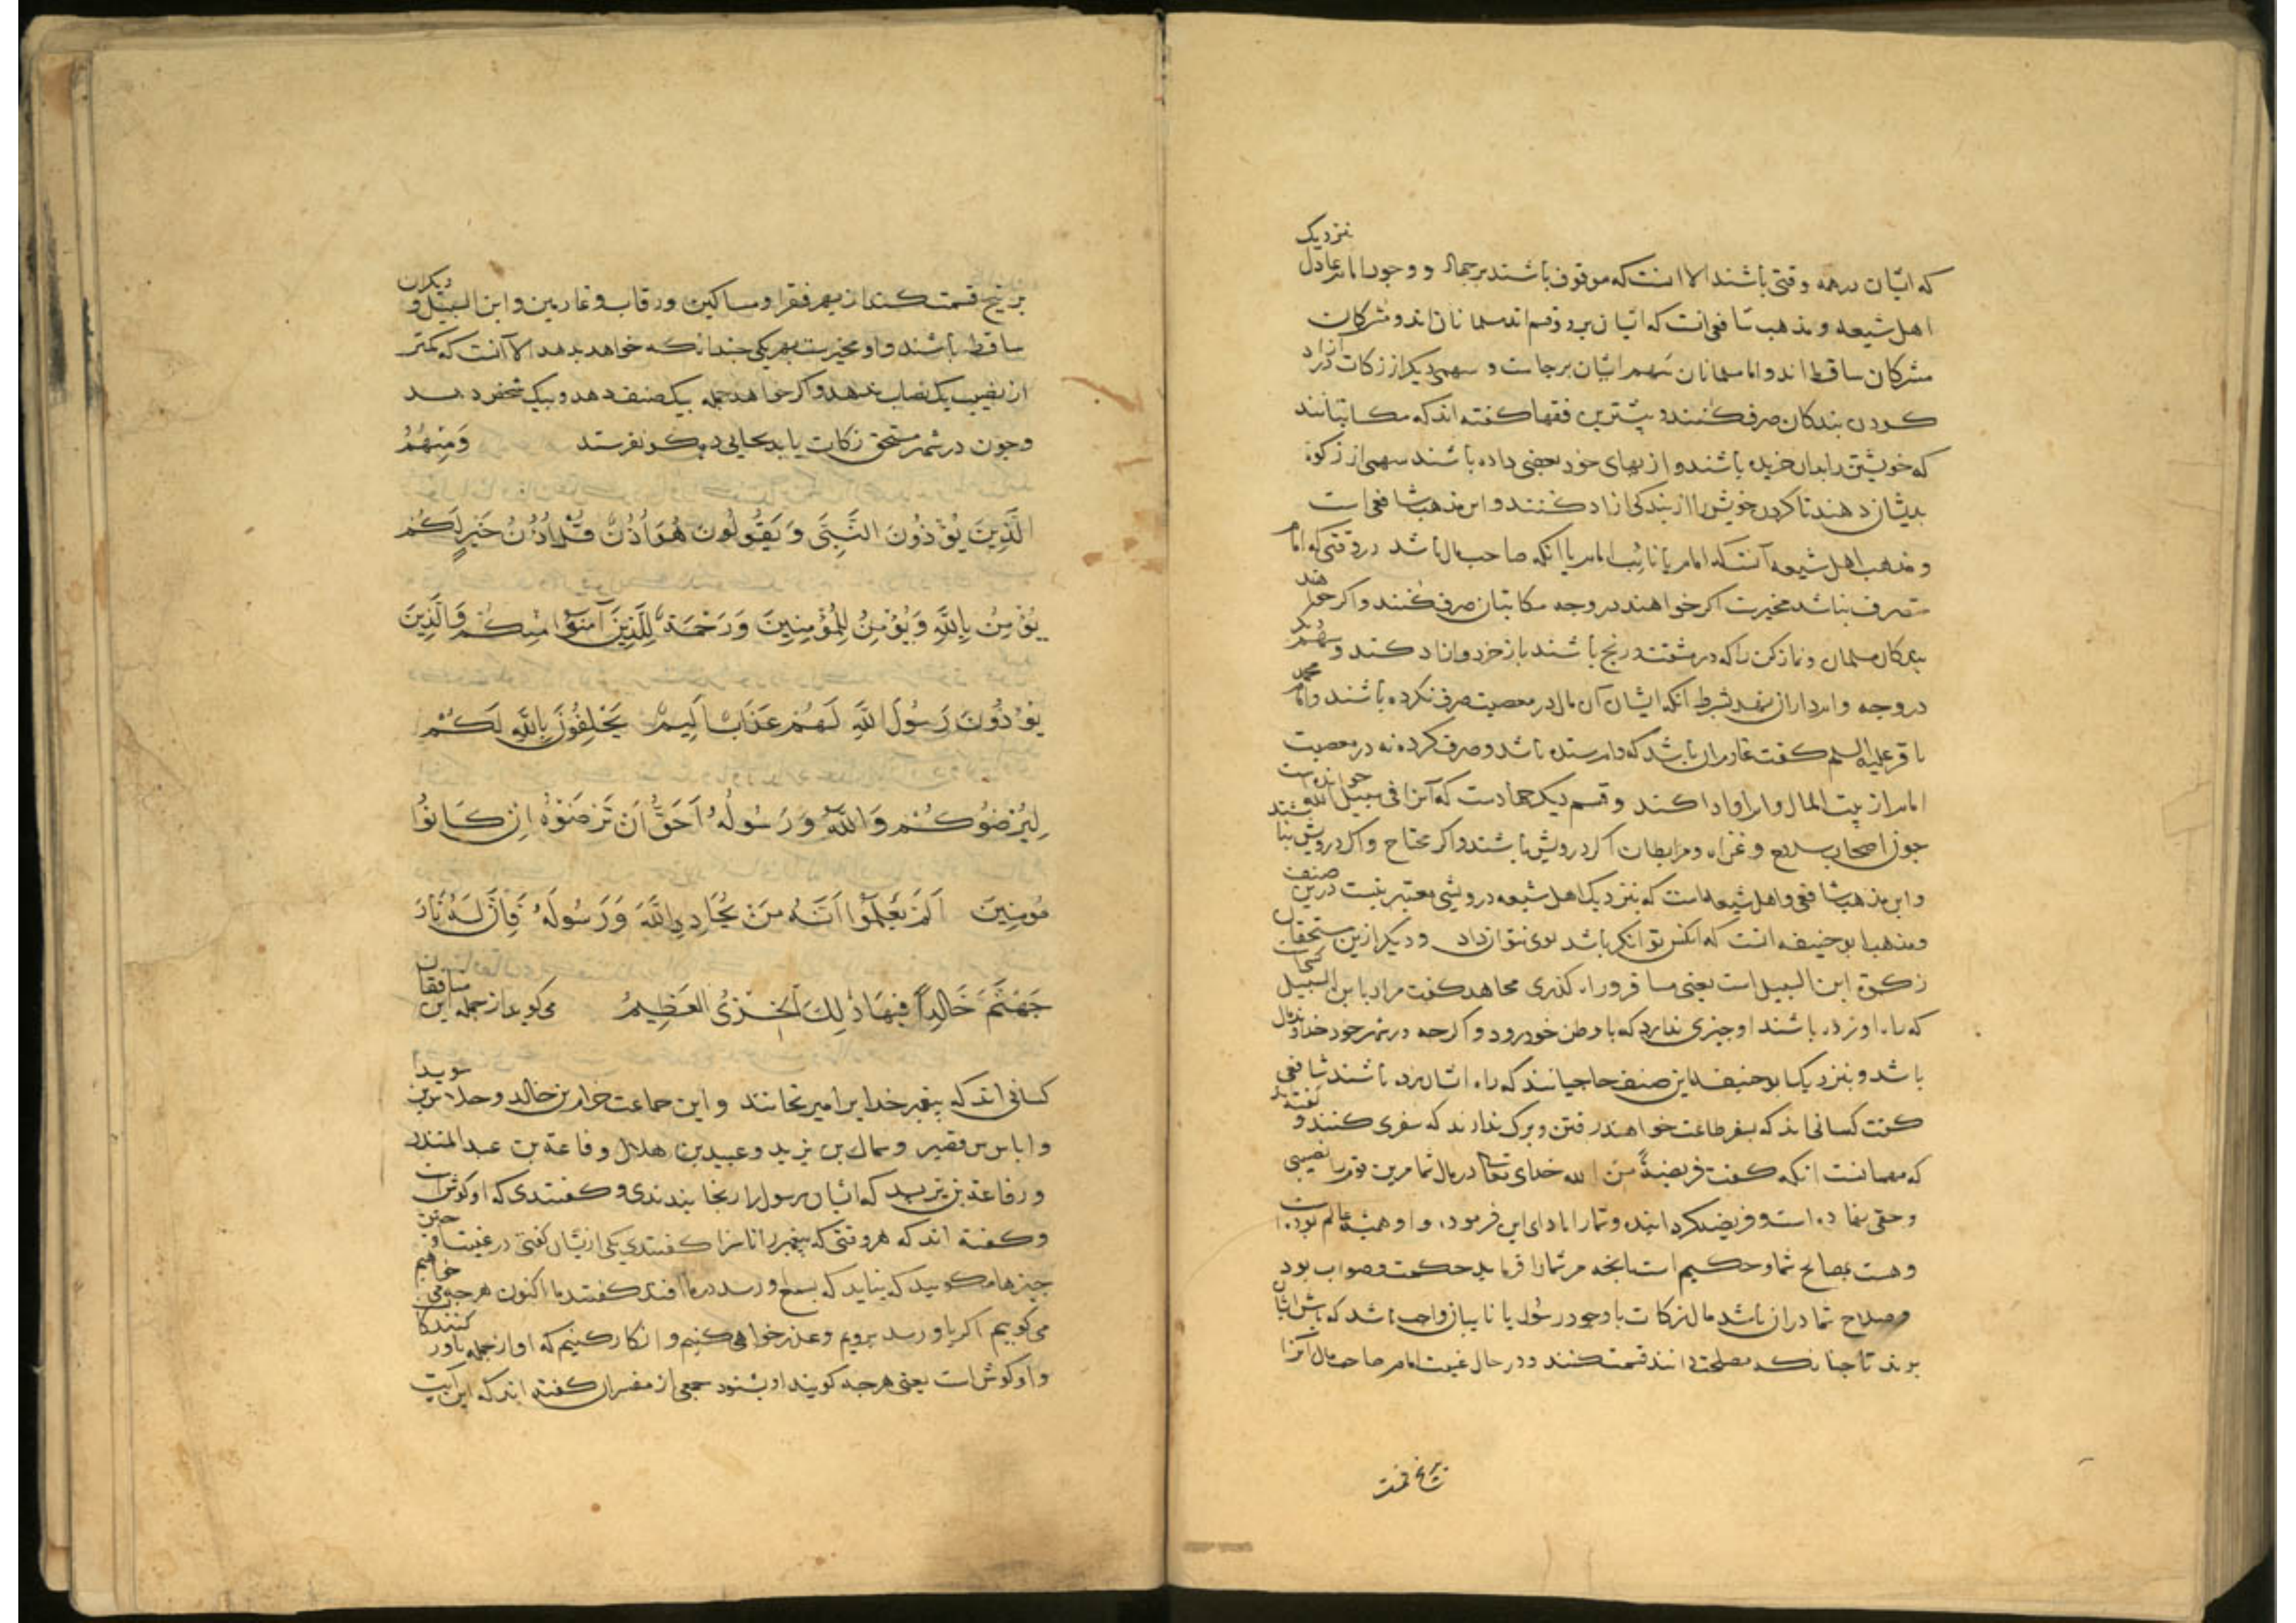 که ایشان درهمه وقتی باشند الا انست که موقوف باشند برجهاد و وجود امام عادل نزدیک
اهل شیعه و مذهب شافعی انست که ایشان بر دو قسم اند مسلمانان اند و مشرکان
مشرکان ساقط اند و اما مسلمانان سهم ایشان برجاست و سهمی دیکر از زکات در آزاد
کردن بندکان صرف کنند و بیشترین فقها کفته اند که مکاتبانند
که خویشتن را بدان خریده باشند و از بهای خود بعضی داده باشند سهمی از زکوة
بدیشان دهند تا کردن خویش را از بندکی ازاد کنند و این مذهب شافعی است
و مذهب اهل شیعه آنست که امام یا نائب امام یا انکه صاحب مال باشد در وقتی که امام
متصرف نباشد مخیرست اکر خواهند در وجه مکاتبان صرف کنند و اکر خواهند
بندکان مسلمان و نمازکن را که در مشقت و رنج باشند باز خرد و ازاد کند و سهم دیکر
در وجه وامداران نهد بشرط آنکه ایشان آن مال در معصیت صرف نکرده باشند و امام محمد
باقر علیه السلم کفت غارمان باشد که وام ستده باشد و صرف کرده نه در معصیت
امام از بیت المال وام او ادا کند و قسم دیکر جهادست که آنرا فی سبیل الله خوانده است
جون اصحاب سلاح و غزاه و مرابطان اکر درویش باشند و اکر محتاج و اکر درویش نباشند
و این مذهب شافعی و اهل شیعه است که بنزدیک اهل شیعه درویشی معتبر نیست درین صنف
و مذهب ابو حنیفه انست که انکس توانکر باشد بوی نتوان داد و دیکر ازین مستحقان
زکوة ابن السبیل است یعنی مسافر و راه کذری مجاهد کفت مراد بابن السبیل
که راه او زده باشند او جیزی ندارد که با وطن خود رود و اکرجه در شهر خود خداوند مال
باشد و بنزدیک ابو حنیفه این صنف حاجیانند که راه ایشان زده باشند شافعی
کفت کسانی اند که بسفر طاعت خواهند رفتن و برک ندارند که سفری کنند و کفته اند
که مهمانست انکه کفت فریضةً من الله خدای تعالی در مال شما مرین قوم را نصیبی
و حقی نهاده است و فریضه کردانیده و شما را بادای این فرموده و او همیشه عالم بوده است
و هست بمصالح شما و حکیم است انجه مر شما را فرماید حکمت و صواب بود
و صلاح شما دران باشد مال زکات با وجود رسول یا نایبان واجب باشد که باش ایشان
برند تا جنانکه مصلحت دانند قسمت کنند و در حال غیبت امام صاحب مال آنرا
بر پنج قسمت
بر پنج قسمت کند از بهر فقرا و مساکین و رقاب و غارمین و ابن السبیل و دیکران
ساقط باشند و او مخیرست بهر یکی جندانکه خواهد بدهد الا آنست که کمتر
از نصیب یک نصاب ندهد و اکر خواهد جمله بیک صنف دهد و بیک شخص دهد
و جون در شهر مستحق زکات یابد بجایی دیکر نفرستد وَمِنهُمُ
الَّذِینَ یُؤْذُونَ النَّبِیَّ وَیَقُولُونَ هُوَ اُذُنٌ قُلْ اُذُنُ خَیْرٍ لَکُمْ
یُؤْمِنُ بِاللّٰهِ وَیُؤْمِنُ لِلْمُؤْمِنِینَ وَرَحْمَةٌ لِلَّذِینَ آمَنُوا مِنکُمْ وَالَّذِینَ
یُؤْذُونَ رَسُولَ اللّٰهِ لَهُمْ عَذَابٌ اَلِیمٌ یَحْلِفُونَ بِاللّٰهِ لَکُمْ
لِیُرْضُوکُمْ وَاللّٰهُ وَرَسُولُهُ اَحَقُّ اَنْ تَرضَوْهُ اِنْ کَانُوا
مُومِنِینَ اَلَمْ یَعْلَمُوا اَنَّهُ مَنْ یُحَادِدِ اللّٰهَ وَرَسُولَهُ فَاِنَّ لَهُ نَارَ
جَهَنَّمَ خَالِداً فِیهَا ذٰلِکَ الخِزْیُ العَظِیمُ می کوید از جمله این منافقان
کسانی اند که پیغمبر خدایرا می رنجانند و این جماعت خدام بن خالد و جلاس بن سوید
و ایاس بن قیس و سماک بن یزید و عبید بن هلال و فاعة بن عبد المنذر
و رفاعة بن یزید که ایشان رسول را برنجانیدندی و کفتندی که او کوش است
و کفته اند که هر وقتی که پیغمبر را ناسزا کفتندی یکی ازیشان کفتی در غیبت او جنین
جیزها مکویید که نباید که بسمع او رسد در ما افتد کفتند ما اکنون هرجه می خواهیم
می کوییم اکر باو رسد برویم و عذرخواهی کنیم و انکار کنیم که او از جمله باور کنندکانست
و او کوش است یعنی هرجه کویند او بشنود جمعی از مفسران کفته اند که این آیت